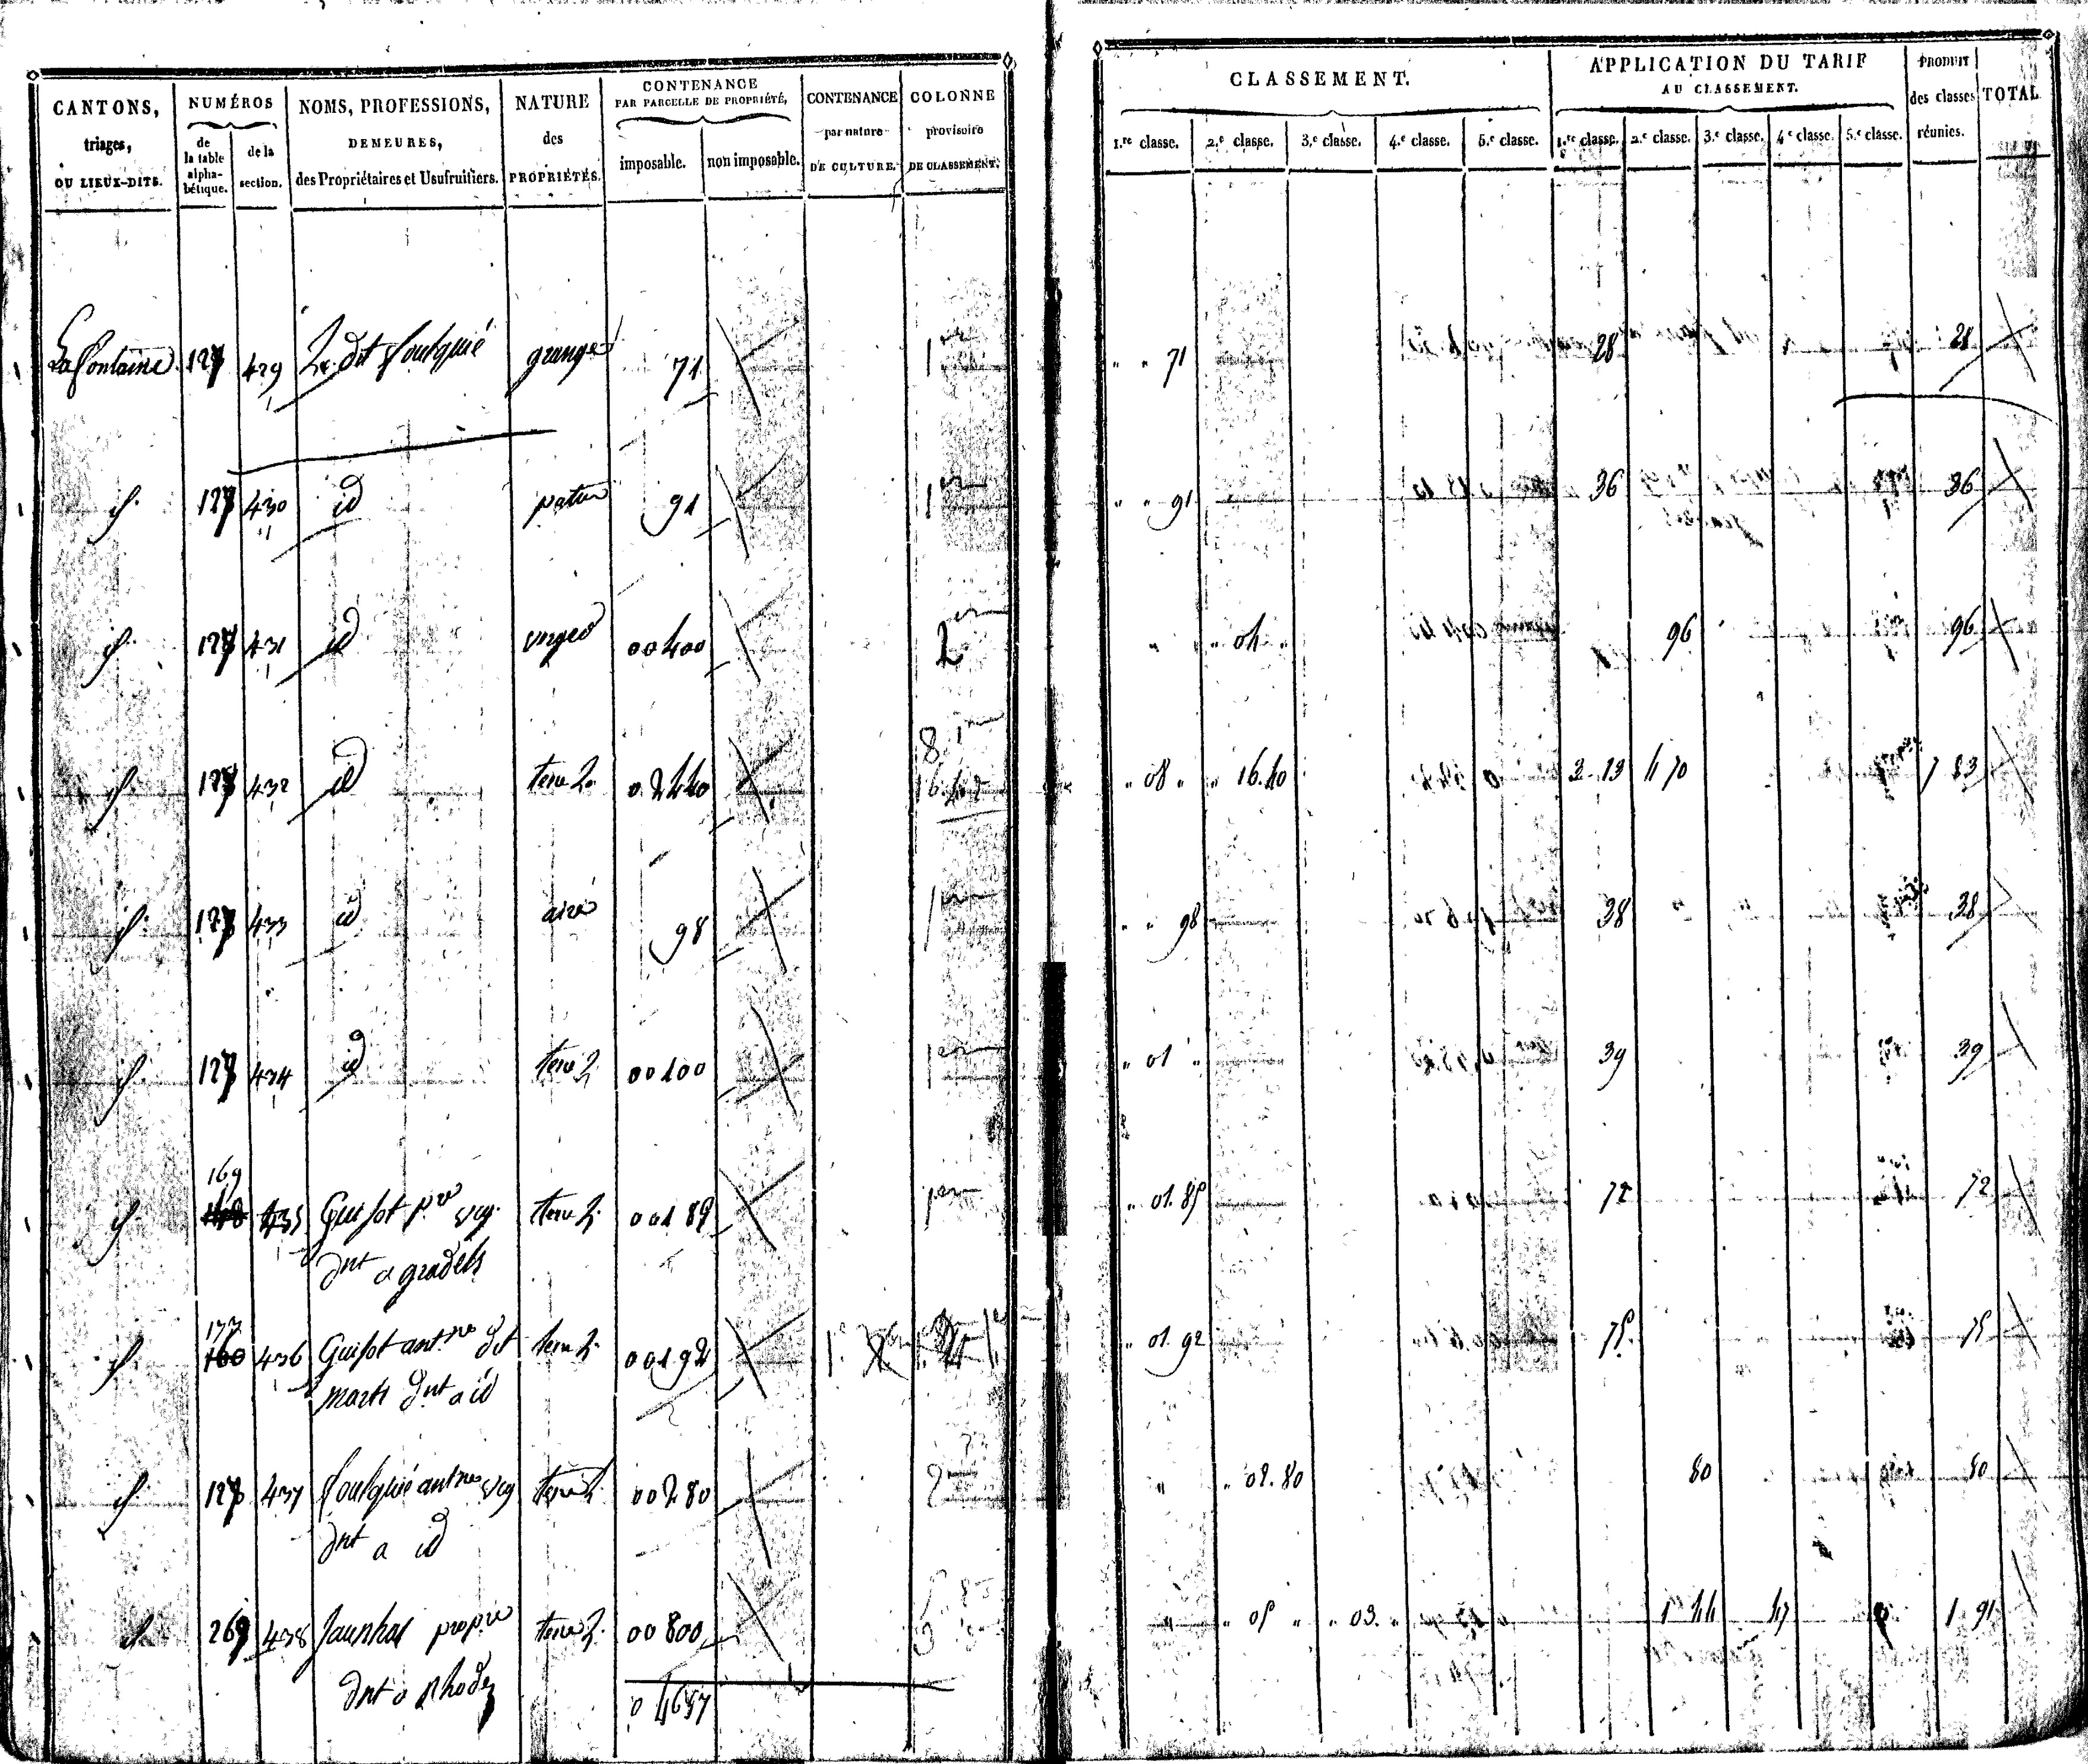 CANTONS, triages, OU LIEUX-DITS. NUMÉROS de la table alphabétique. de la section. NOMS, PROFESSIONS, DEMEURES, des Propriétaires et Usufruitiers. NATURE des PROPRIÉTÉS. CONTENANCE PAR PARCELLE DE PROPRIÉTÉ, imposable. non imposable. CONTENANCE par nature DE CULTURE. COLONNE provisoire DE CLASSEMENT.
CLASSEMENT. 1.re classe. 2.e classe. 3.e classe. 4.e classe. 5.e classe. APPLICATION DU TARIF AU CLASSEMENT. 1.re classe. 2.e classe. 3.e classe. 4.e classe. 5.e classe. PRODUIT des classes réunies. TOTAL
La fontaine 127 429 Le dit foulquié grange 71 1re " " 71 28 28
id. 127 430 id patus 91 1re " " 91 36 36
id. 127 431 id verger 00400 2 " " 04 " 96 96
id. 127 432 id terre 2. 02440 8. 16.40 " 08 " " 16.40 3 13 4 70 7 83
id. 127 433 id aire 98 1re " " 98 38 38
id. 127 434 id terre 2 00100 1re " 01 " 39 39
169
id. 435 Guisot p.re terre 2. 00189 1re " 01.89 72 72
dnt a gradels
id. 160 436 Guisot ant.ne dt terre 2. 00192 " 01.92 75 75
dnt a id
id. 127 437 foulquié antne terre 2 00280 2 " " 02.80 80 80
dnt a id
id. 269 438 propre terre 2. 00800 " " 05 " " 03 " 1 44 47 1 91
dnt a Rhodez
0 4697